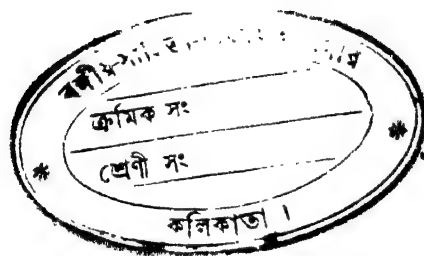 ক্রমিক সং
শ্রেণী সং
* *
কলিকাতা ।